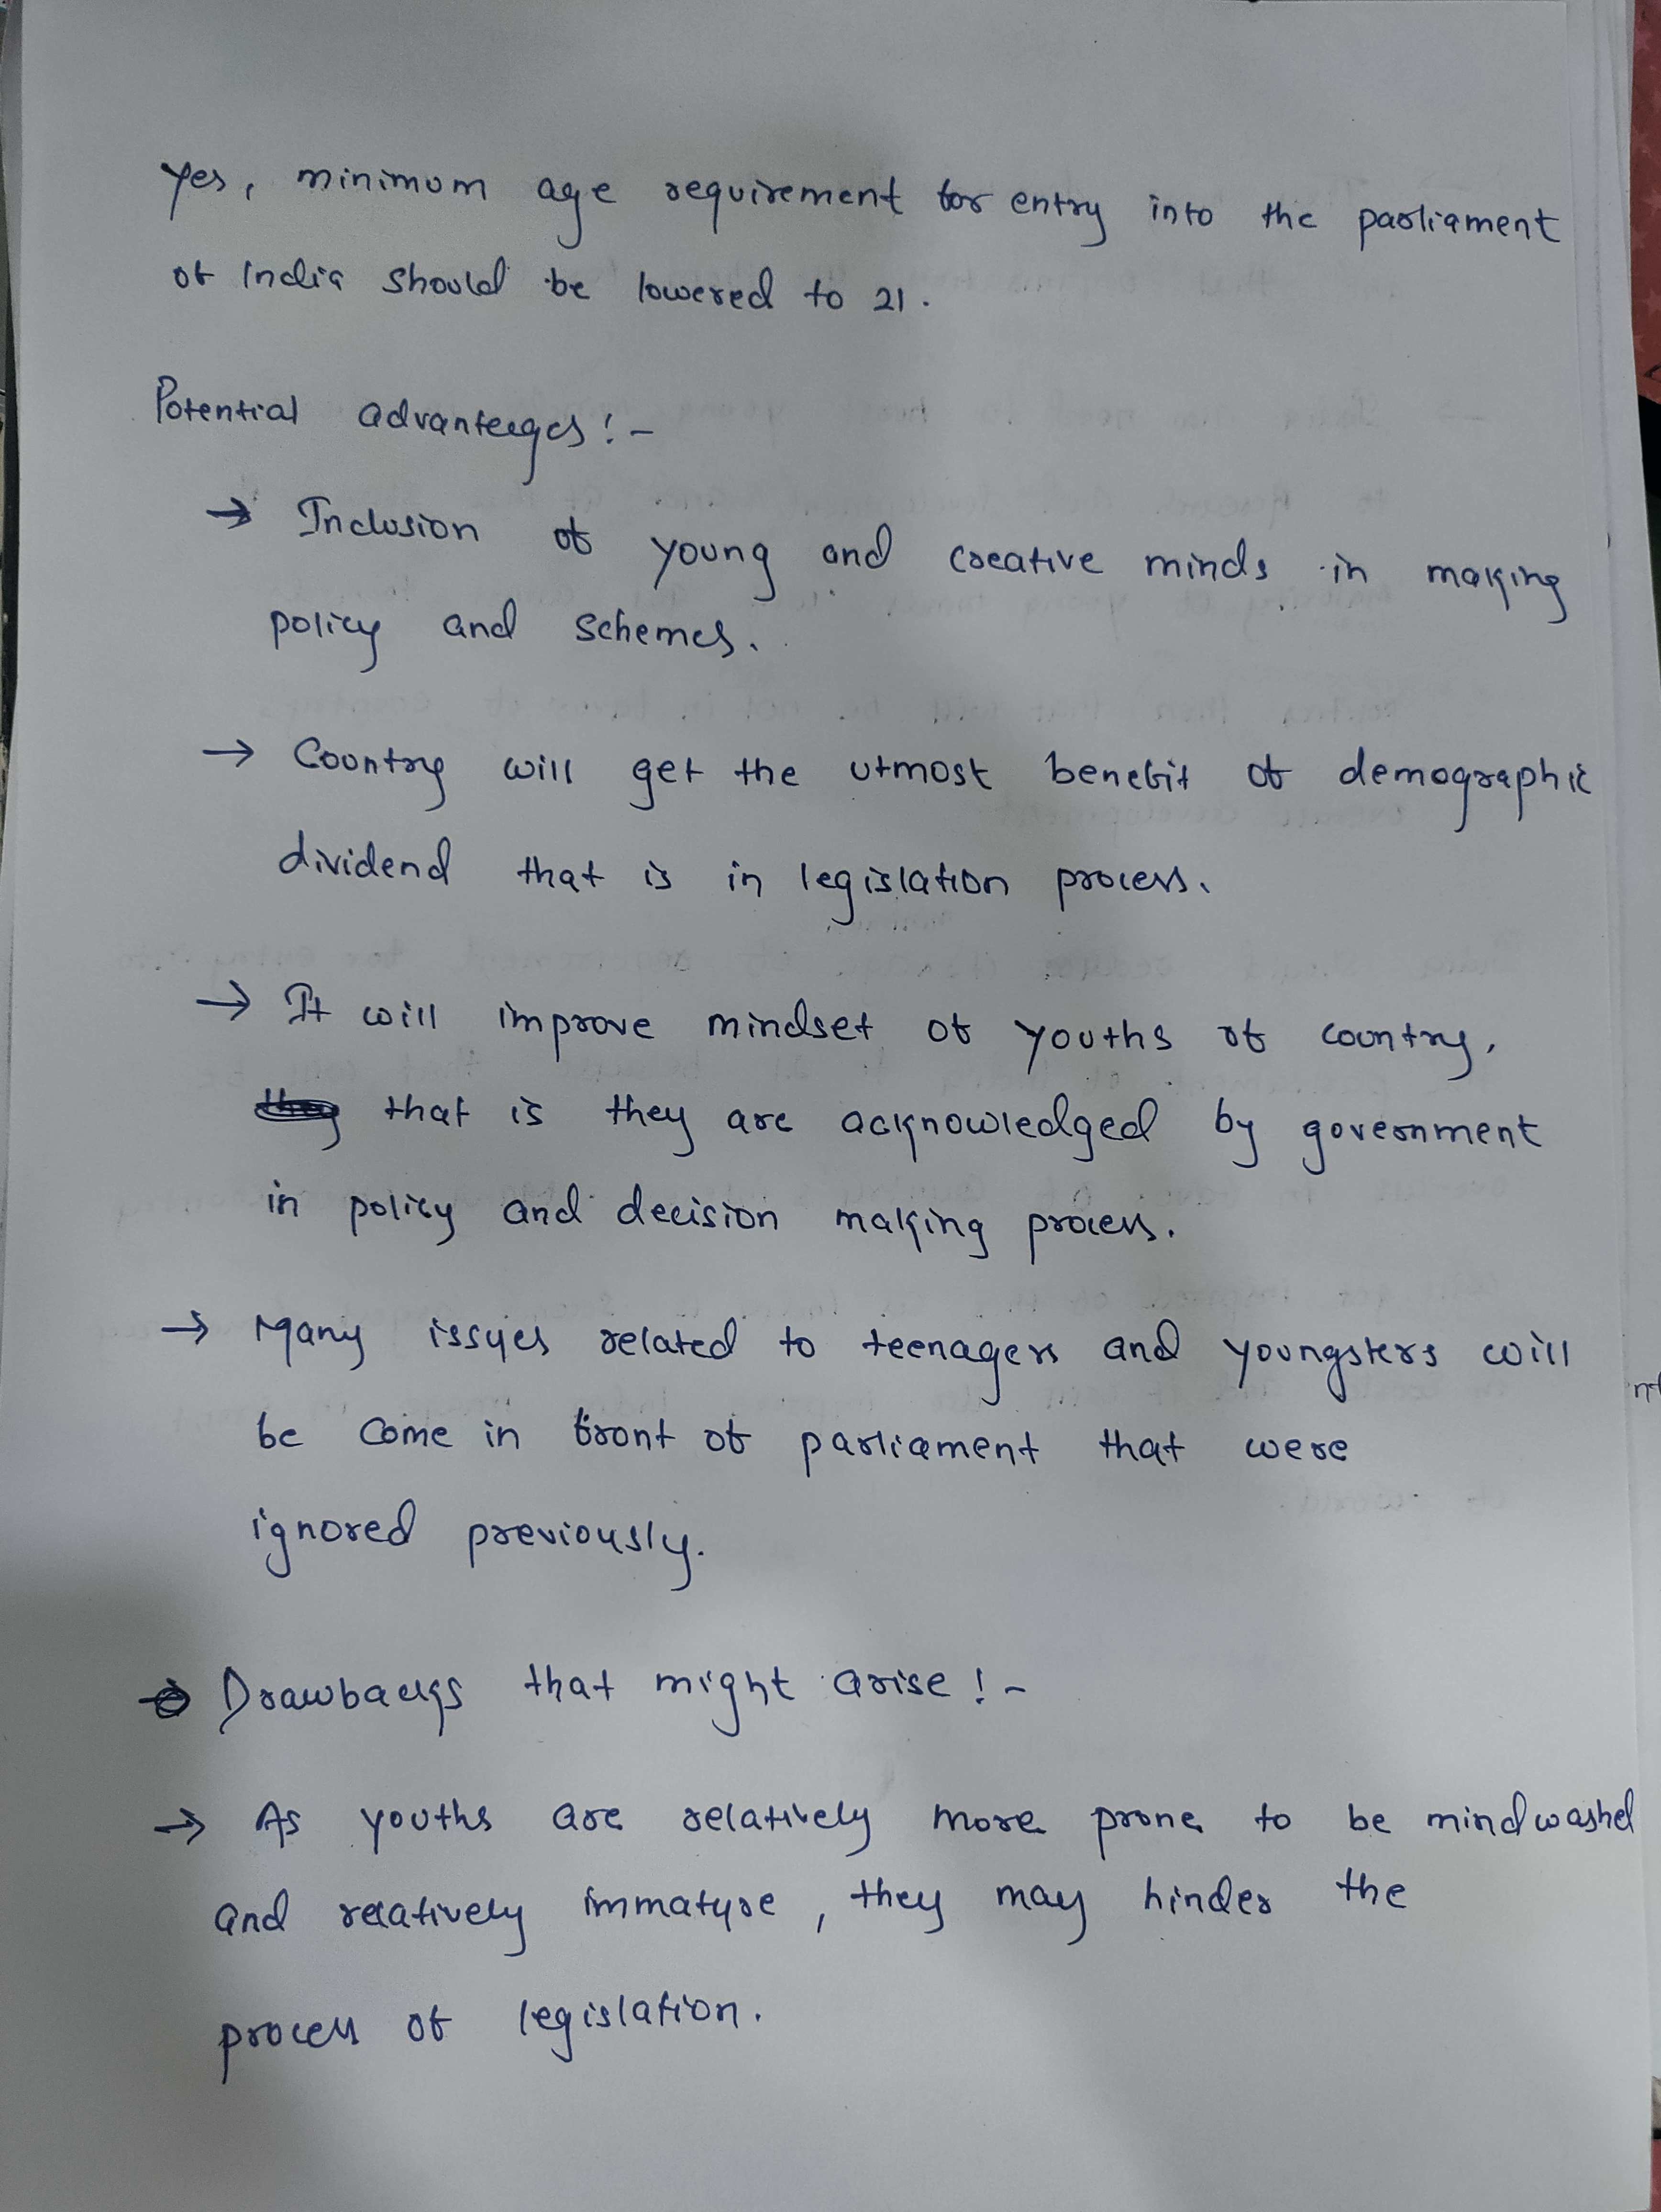 Yes, minimum age requirement for entry into the parliament
of India should be lowered to 21.
Potential advanteages :-
→ Inclusion of young and creative minds in making
policy and schemes.
→ Country will get the utmost benefit of demographic
dividend that is in legislation process.
→ It will improve mindset of youths of country,
that is they are acknowledged by government
in policy and decision making process.
→ Many issues related to teenagers and youngsters will
be come in front of parliament that were
ignored previously.
Drawbacks that might arise :-
→ As youths are relatively more prone to be mindwashed
and relatively immature, they may hinder the
process of legislation.